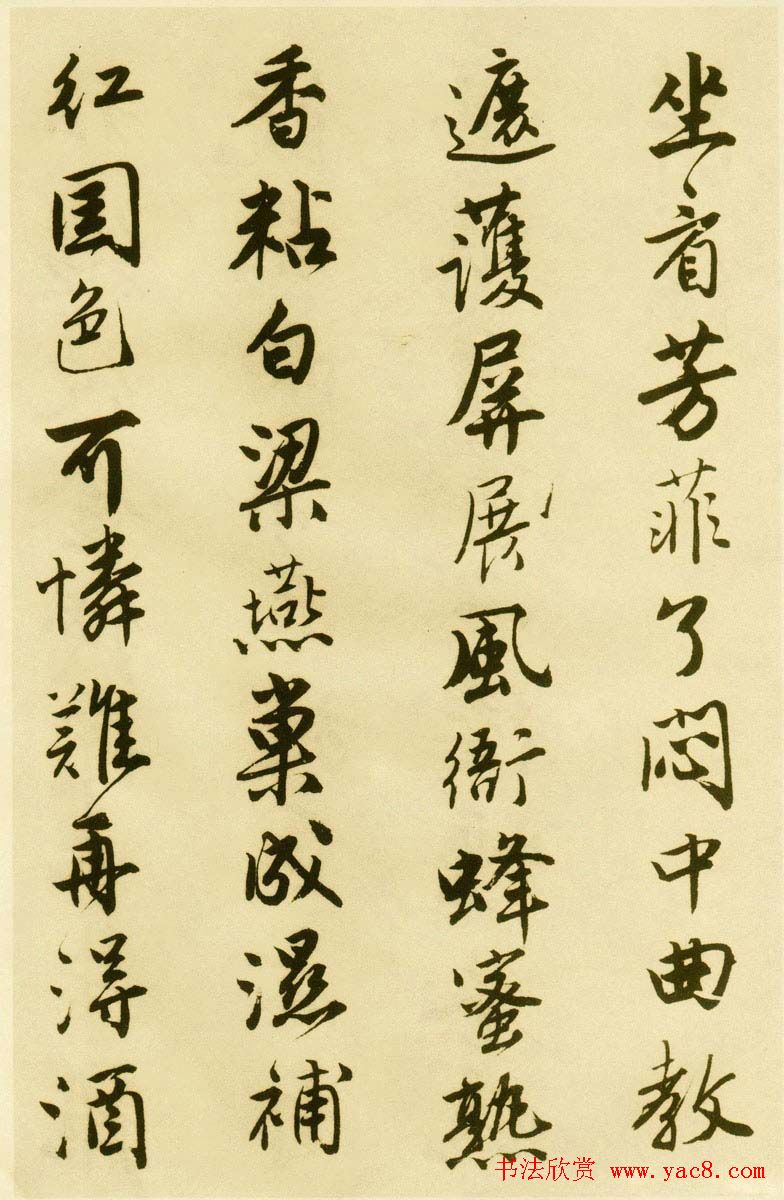 坐看芳菲了悶中曲教
遮護屏展風銜蜂蜜熟
香粘白梁燕巢成濕補
紅國色可憐難再得酒
书法欣赏 www.yac8.com